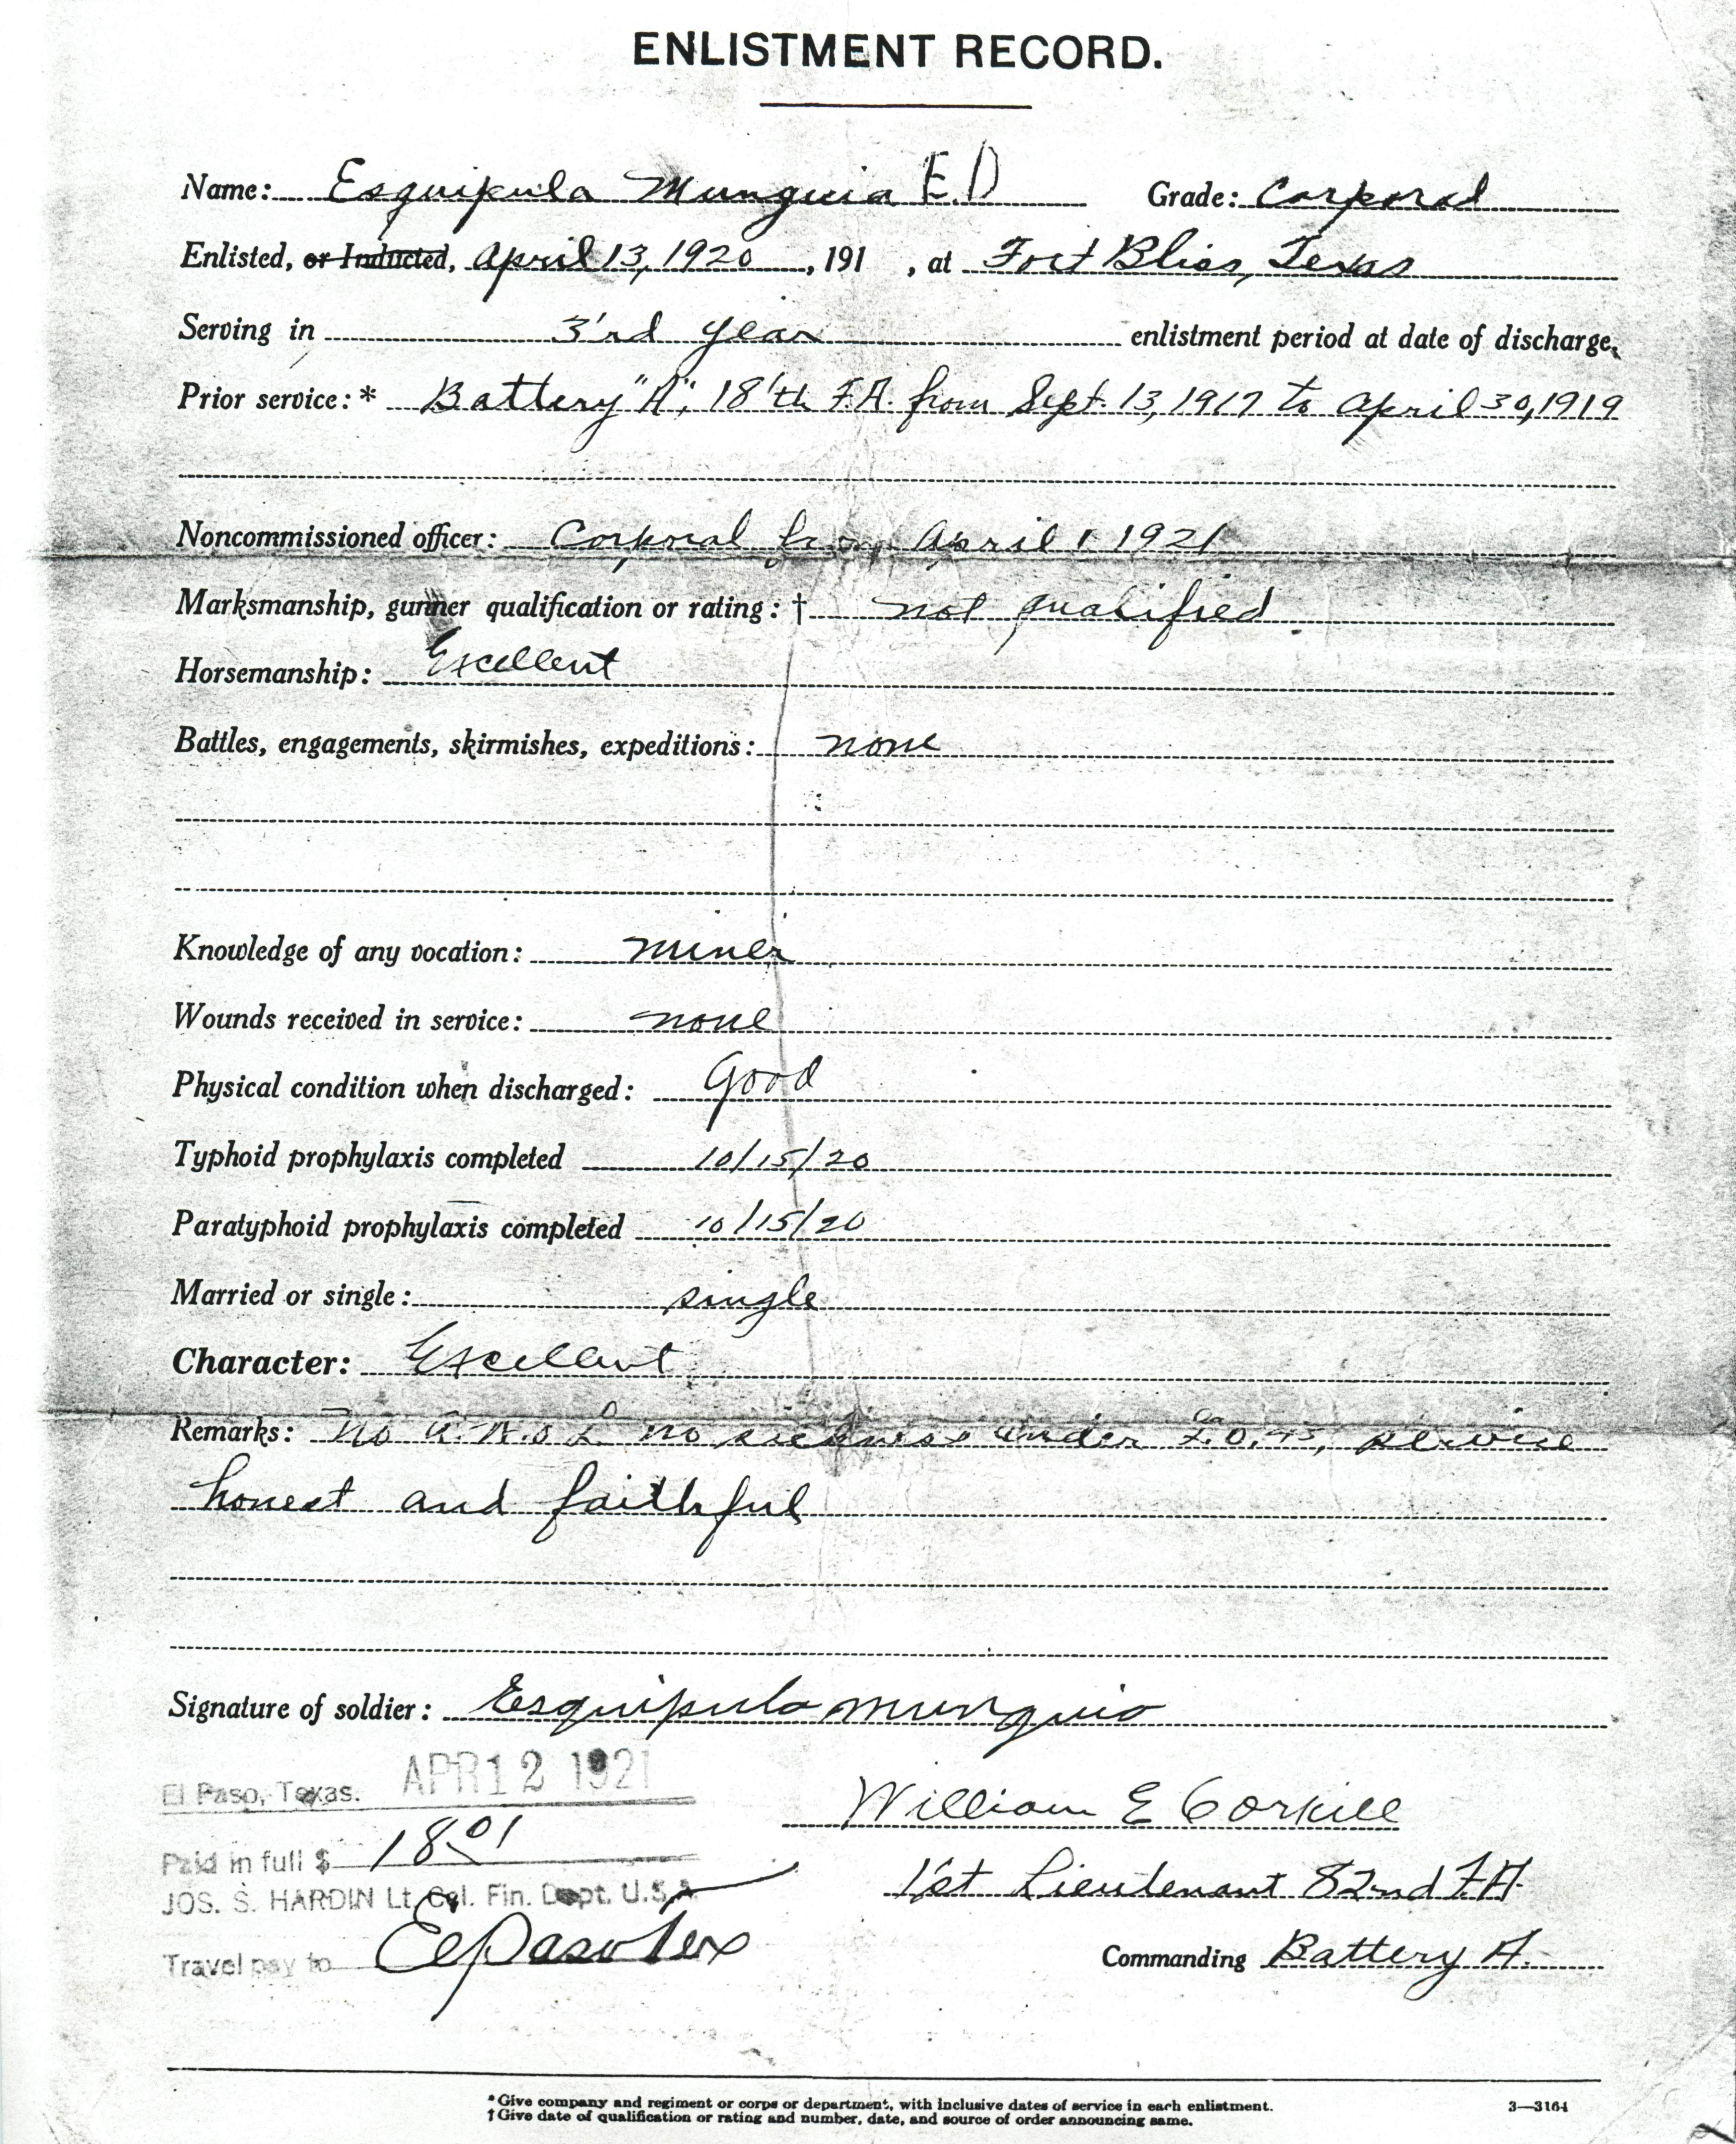 ENLISTMENT RECORD.
Name: Esquipula Munguia E.D Grade: Corporal
Enlisted, or Inducted, April 13, 1920, 191 , at Fort Bliss, Texas
Serving in 3'rd year enlistment period at date of discharge.
Prior service: * Battery "A", 18'th F.A. from Sept. 13, 1917 to April 30, 1919
Noncommissioned officer: Corporal from April 1 1921
Marksmanship, gunner qualification or rating: † not qualified
Horsemanship: Excellent
Battles, engagements, skirmishes, expeditions: none
Knowledge of any vocation: miner
Wounds received in service: none
Physical condition when discharged: Good
Typhoid prophylaxis completed 10/15/20
Paratyphoid prophylaxis completed 10/15/20
Married or single: single
Character: Excellent
Remarks: No A.W.O.L. no sickness under service
honest and faithful
Signature of soldier: Esquipula Munguia
El Paso, Texas. APR 12 1921
William E Corkill
Paid in full $ 18.01
1'st Lieutenant 82nd F.A.
JOS. S. HARDIN Lt. Col. Fin. Dept. U.S.A.
Travel pay to El Paso Tex
Commanding Battery A.
* Give company and regiment or corps or department, with inclusive dates of service in each enlistment.
† Give date of qualification or rating and number, date, and source of order announcing same.
3—3164